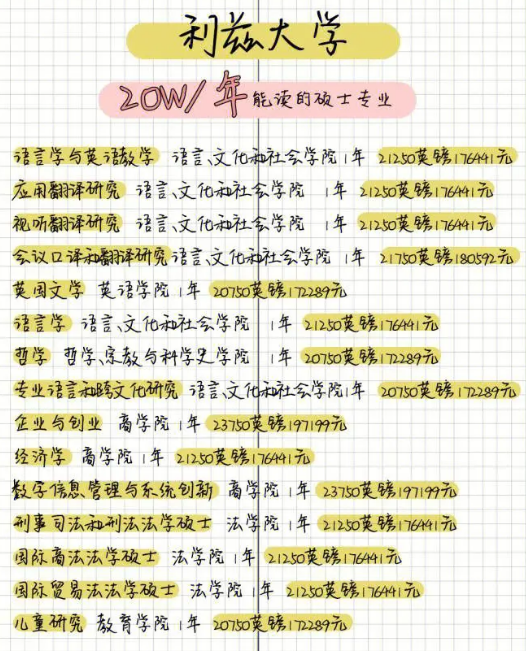 利兹大学
20W/年能读的硕士专业
语言学与英语教学 语言、文化和社会学院 1年 21250英镑176441元
应用翻译研究 语言、文化和社会学院 1年 21250英镑176441元
视听翻译研究 语言、文化和社会学院 1年 21250英镑176441元
会议口译和翻译研究 语言、文化和社会学院 1年 21750英镑180592元
英国文学 英语学院 1年 20750英镑172289元
语言学 语言、文化和社会学院 1年 21250英镑176441元
哲学 哲学、宗教与科学史学院 1年 20750英镑172289元
专业语言和跨文化研究 语言、文化和社会学院1年 20750英镑172289元
企业与创业 商学院 1年 23750英镑197199元
经济学 商学院 1年 21250英镑176441元
数字信息管理与系统创新 商学院 1年 23750英镑197199元
刑事司法和刑法法学硕士 法学院 1年 21250英镑176441元
国际商法法学硕士 法学院 1年 21250英镑176441元
国际贸易法法学硕士 法学院 1年 21250英镑176441元
儿童研究 教育学院 1年 20750英镑172289元